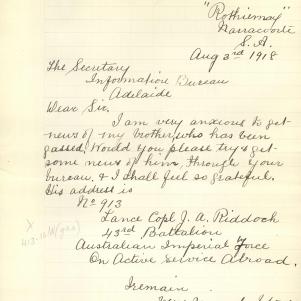 "Rothiemay"
Narracoorte
S.A.
Aug 3rd 1918
The Secretary
Information Bureau
Adelaide
Dear Sir.
I am very anxious to get
news of my brother, who has been
gassed, Would you please try & get
some news of him, through your
bureau. & I shall feel so grateful.
His address is
No 913
Lance Copl J. A. Riddoch
43rd Battalion
Australian Imperial Force
On Active Service Abroad.
I remain